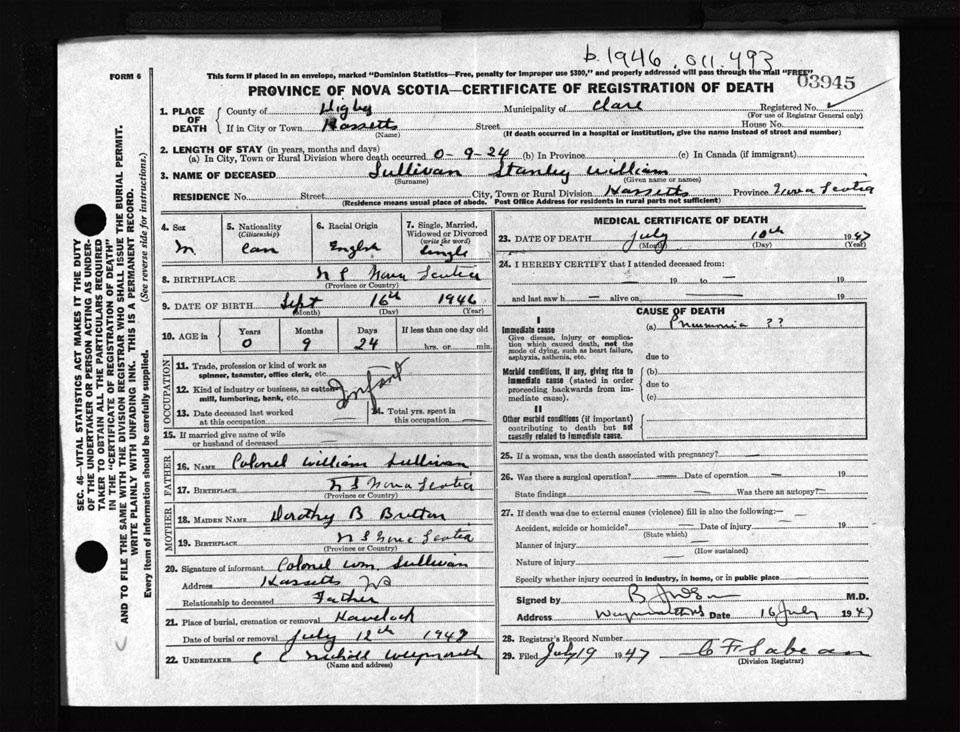 b. 1946. 011. 493
FORM 6
This form if placed in an envelope, marked "Dominion Statistics—Free, penalty for improper use $300," and properly addressed will pass through the mail "FREE"
03945
PROVINCE OF NOVA SCOTIA—CERTIFICATE OF REGISTRATION OF DEATH
1. PLACE OF DEATH
County of Digby Municipality of Clare Registered No.
(For use of Registrar General only)
If in City or Town Hassetts Street House No.
(Name) (If death occurred in a hospital or institution, give the name instead of street and number)
2. LENGTH OF STAY (in years, months and days)
(a) In City, Town or Rural Division where death occurred 0-9-24 (b) In Province (c) In Canada (if immigrant)
3. NAME OF DECEASED Sullivan Stanley William
(Surname) (Given name or names)
RESIDENCE No. Street City, Town or Rural Division Hassetts Province Nova Scotia
(Residence means usual place of abode. Post Office Address for residents in rural parts not sufficient)
4. Sex
M.
5. Nationality
(Citizenship)
Can
6. Racial Origin
English
7. Single, Married, Widowed or Divorced
(write the word)
Single
8. BIRTHPLACE N S Nova Scotia
(Province or Country)
9. DATE OF BIRTH Sept 16th 1946
(Month) (Day) (Year)
10. AGE in Years Months Days If less than one day old
0 9 24 hrs. or min.
OCCUPATION
11. Trade, profession or kind of work as spinner, teamster, office clerk, etc.
12. Kind of industry or business, as cotton mill, lumbering, bank, etc.
Infant
13. Date deceased last worked at this occupation
14. Total yrs. spent in this occupation —
15. If married give name of wife or husband of deceased —
FATHER
16. NAME Colonel William Sullivan
17. BIRTHPLACE N S Nova Scotia
(Province or Country)
MOTHER
18. MAIDEN NAME Dorothy B
19. BIRTHPLACE N S Nova Scotia
(Province or Country)
20. Signature of informant Colonel Wm. Sullivan
Address Hassetts NS
Relationship to deceased Father
21. Place of burial, cremation or removal Havelock
Date of burial or removal July 12th 1947
22. UNDERTAKER C C
(Name and address)
MEDICAL CERTIFICATE OF DEATH
23. DATE OF DEATH July 10th 1947
(Month) (Day) (Year)
24. I HEREBY CERTIFY that I attended deceased from:
— 19 to — 19
and last saw h — alive on — 19
CAUSE OF DEATH
I
Immediate cause (a) Pneumonia ??
Give disease, injury or complication which caused death, not the mode of dying, such as heart failure, asphyxia, asthenia, etc.
due to
Morbid conditions, if any, giving rise to immediate cause (stated in order proceeding backwards from immediate cause).
(b)
due to
(c)
II
Other morbid conditions (if important) contributing to death but not causally related to immediate cause.
25. If a woman, was the death associated with pregnancy? —
26. Was there a surgical operation? — Date of operation — 19
State findings Was there an autopsy? —
27. If death was due to external causes (violence) fill in also the following:—
Accident, suicide or homicide? — Date of injury — 19
(State which)
Manner of injury —
(How sustained)
Nature of injury —
Specify whether injury occurred in industry, in home, or in public place —
Signed by M.D.
Address Date 16 July 1947
28. Registrar's Record Number
29. Filed July 19 1947 C F Sabean
(Division Registrar)
SEC. 46—VITAL STATISTICS ACT MAKES IT THE DUTY
OF THE UNDERTAKER OR PERSON ACTING AS UNDER-
TAKER TO OBTAIN ALL THE PARTICULARS REQUIRED
IN THE "CERTIFICATE OF REGISTRATION OF DEATH"
AND TO FILE THE SAME WITH THE DIVISION REGISTRAR WHO SHALL ISSUE THE BURIAL PERMIT.
WRITE PLAINLY WITH UNFADING INK. THIS IS A PERMANENT RECORD.
Every item of information should be carefully supplied. (See reverse side for instructions.)